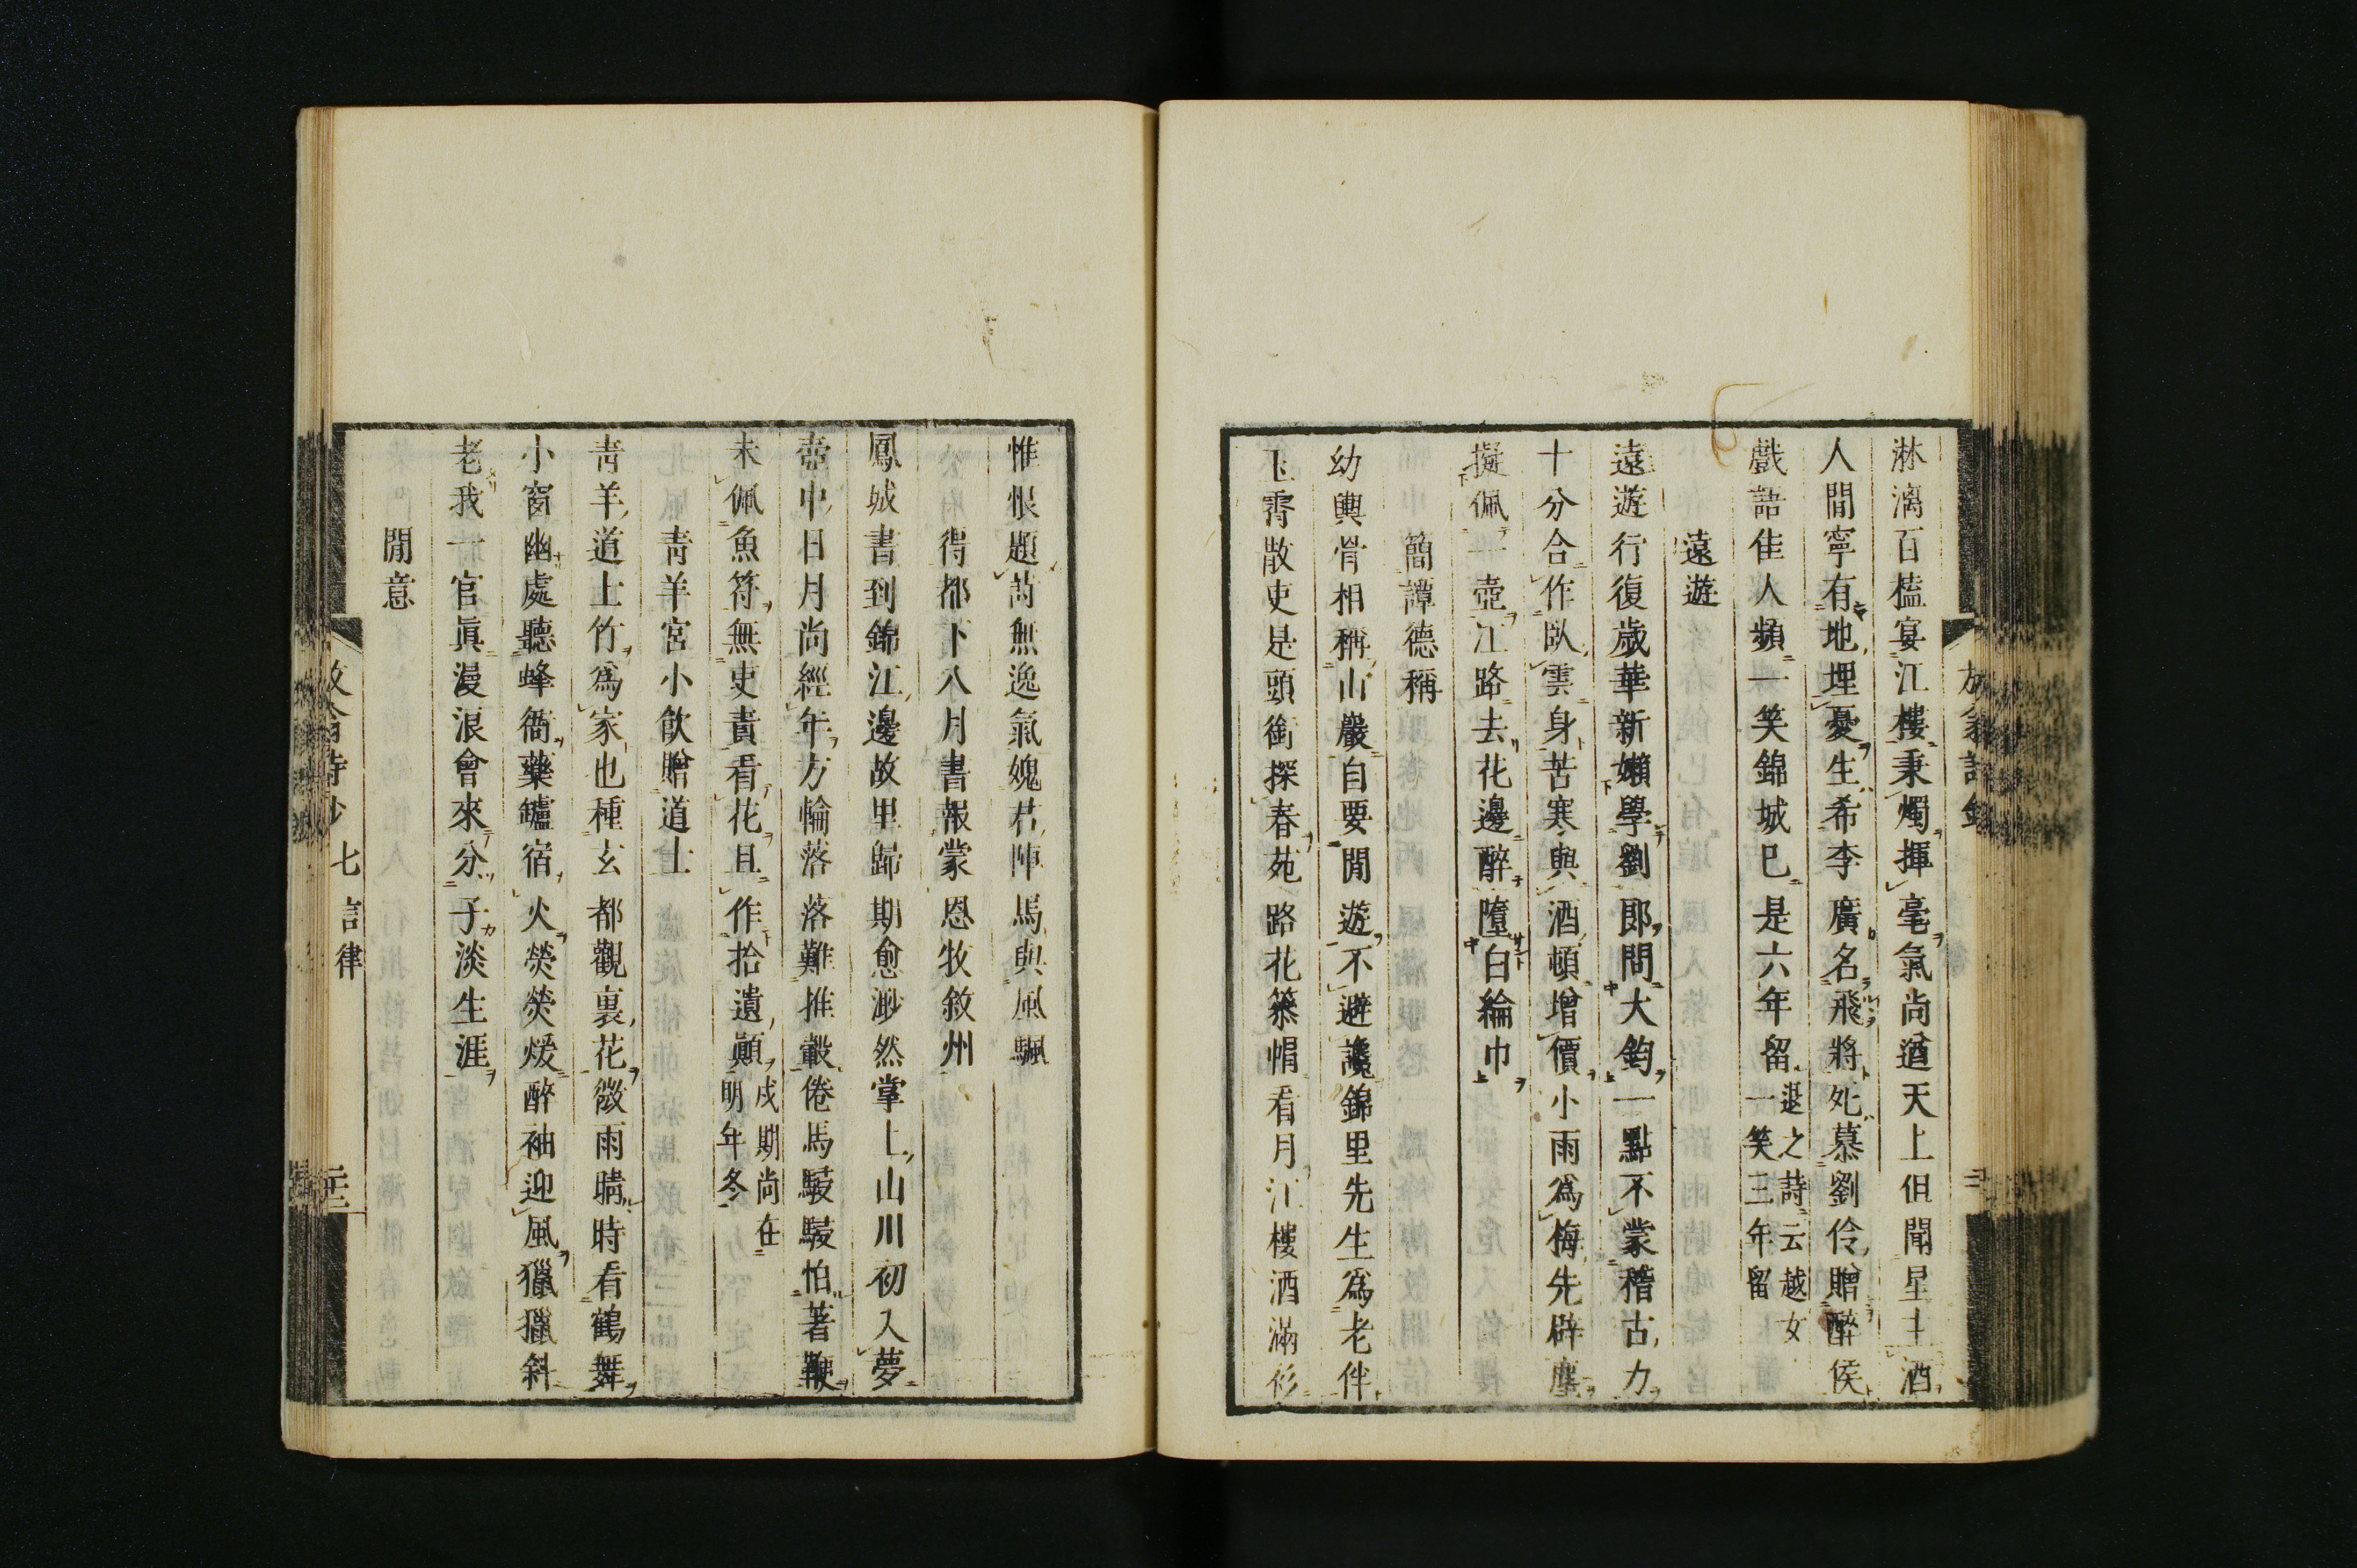 淋漓百榼宴江樓秉燭揮毫氣尚遒天上但聞星主酒
人間寧有地埋憂生希李廣名飛將死慕劉伶贈醉侯
戲語佳人頻一笑錦城已是六年留退之詩云越女一笑三年留
遠遊
遠遊行復歲華新嬾學劉郎問大鈞一點不蒙稽古力
十分合作臥雲身苦寒與酒頓增價小雨爲梅先辟塵
擬佩一壺江路去花邊醉墮白綸巾
簡譚德稱
幼輿骨相稱山巖自要閒遊不避讒錦里先生爲老伴
玉霄散吏是頭銜探春苑路花簇帽看月江樓酒滿衫
惟恨題萵無逸氣媿君陣馬與風颿
得都下八月書報蒙恩牧敘州
鳳城書到錦江邊故里歸期愈渺然掌上山川初入夢
壺中日月尚經年方輪落落難推轂倦馬駸駸怕著鞭
未佩魚符無吏責看花且作拾遺顛戍期尚在明年冬
青羊宮小飲贈道士
青羊道上竹爲家也種玄都觀裏花微雨晴時看鶴舞
小窗幽處聽蜂衙藥罏宿火熒熒煖醉袖迎風獵獵斜
老我一官眞漫浪會來分子淡生涯
閒意
七言律